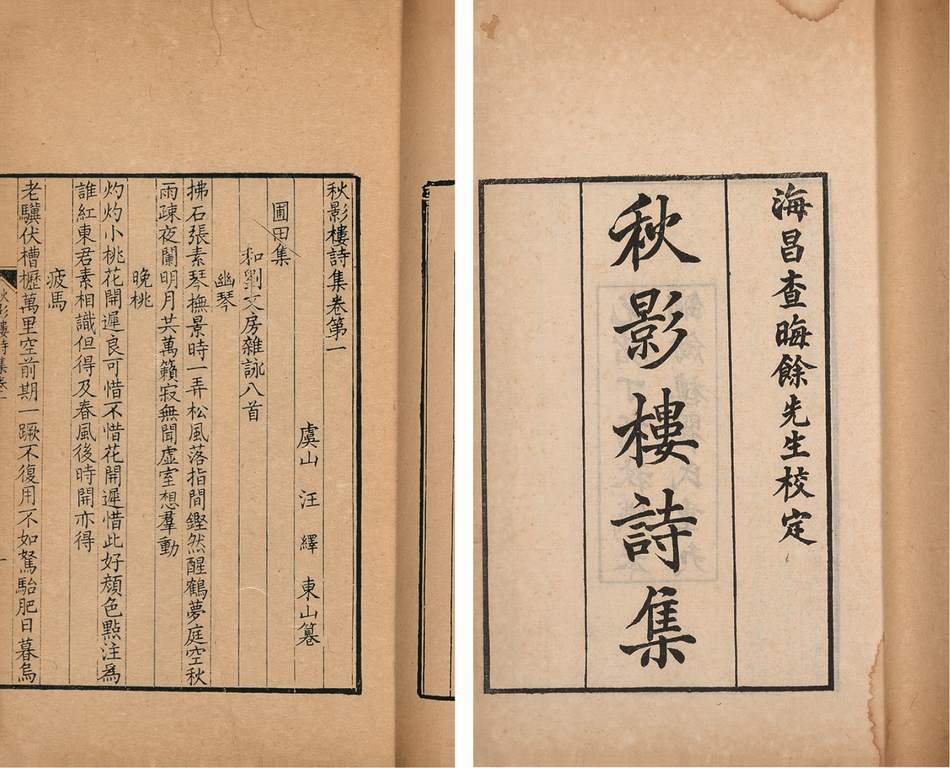 海昌查晦餘先生校定
秋影樓詩集
秋影樓詩集卷第一
虞山 汪繹 東山篹
圃田集
和劉文房雜詠八首
幽琴
拂石張素琴撫景時一弄松風落指間鏗然醒鶴夢庭空秋
雨疎夜闌明月共萬籟寂無聞虛室想羣動
晚桃
灼灼小桃花開遲良可惜不惜花開遲惜此好顏色點注為
誰紅東君素相識但得及春風後時開亦得
疲馬
老驥伏槽櫪萬里空前期一蹶不復用不如駑駘肥日暮烏
秋影樓詩集卷一